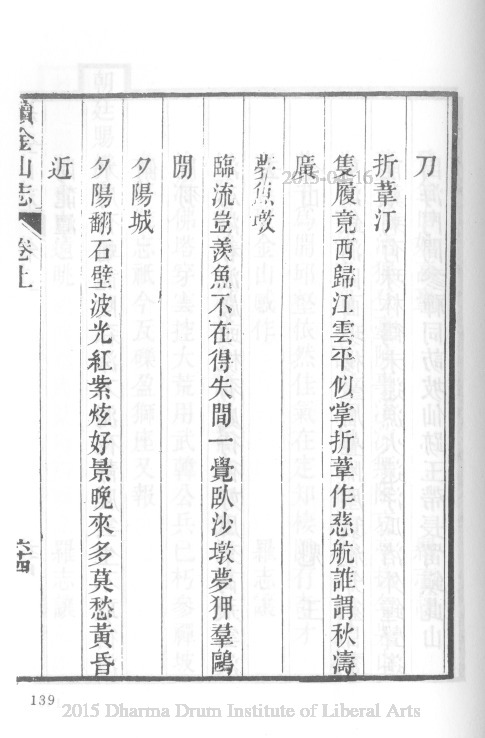 刀
折葦汀
隻履竟西歸江雲平似掌折葦作慈航誰謂秋濤
廣
夢魚墩
臨流豈羨魚不在得失間一覺臥沙墩夢狎羣鷗
閒
夕陽城
夕陽翻石壁波光紅紫炫好景晚來多莫愁黃昏
近
續金山志
卷上
六十四
139
2015-04-16
2015 Dharma Drum Institute of Liberal Arts